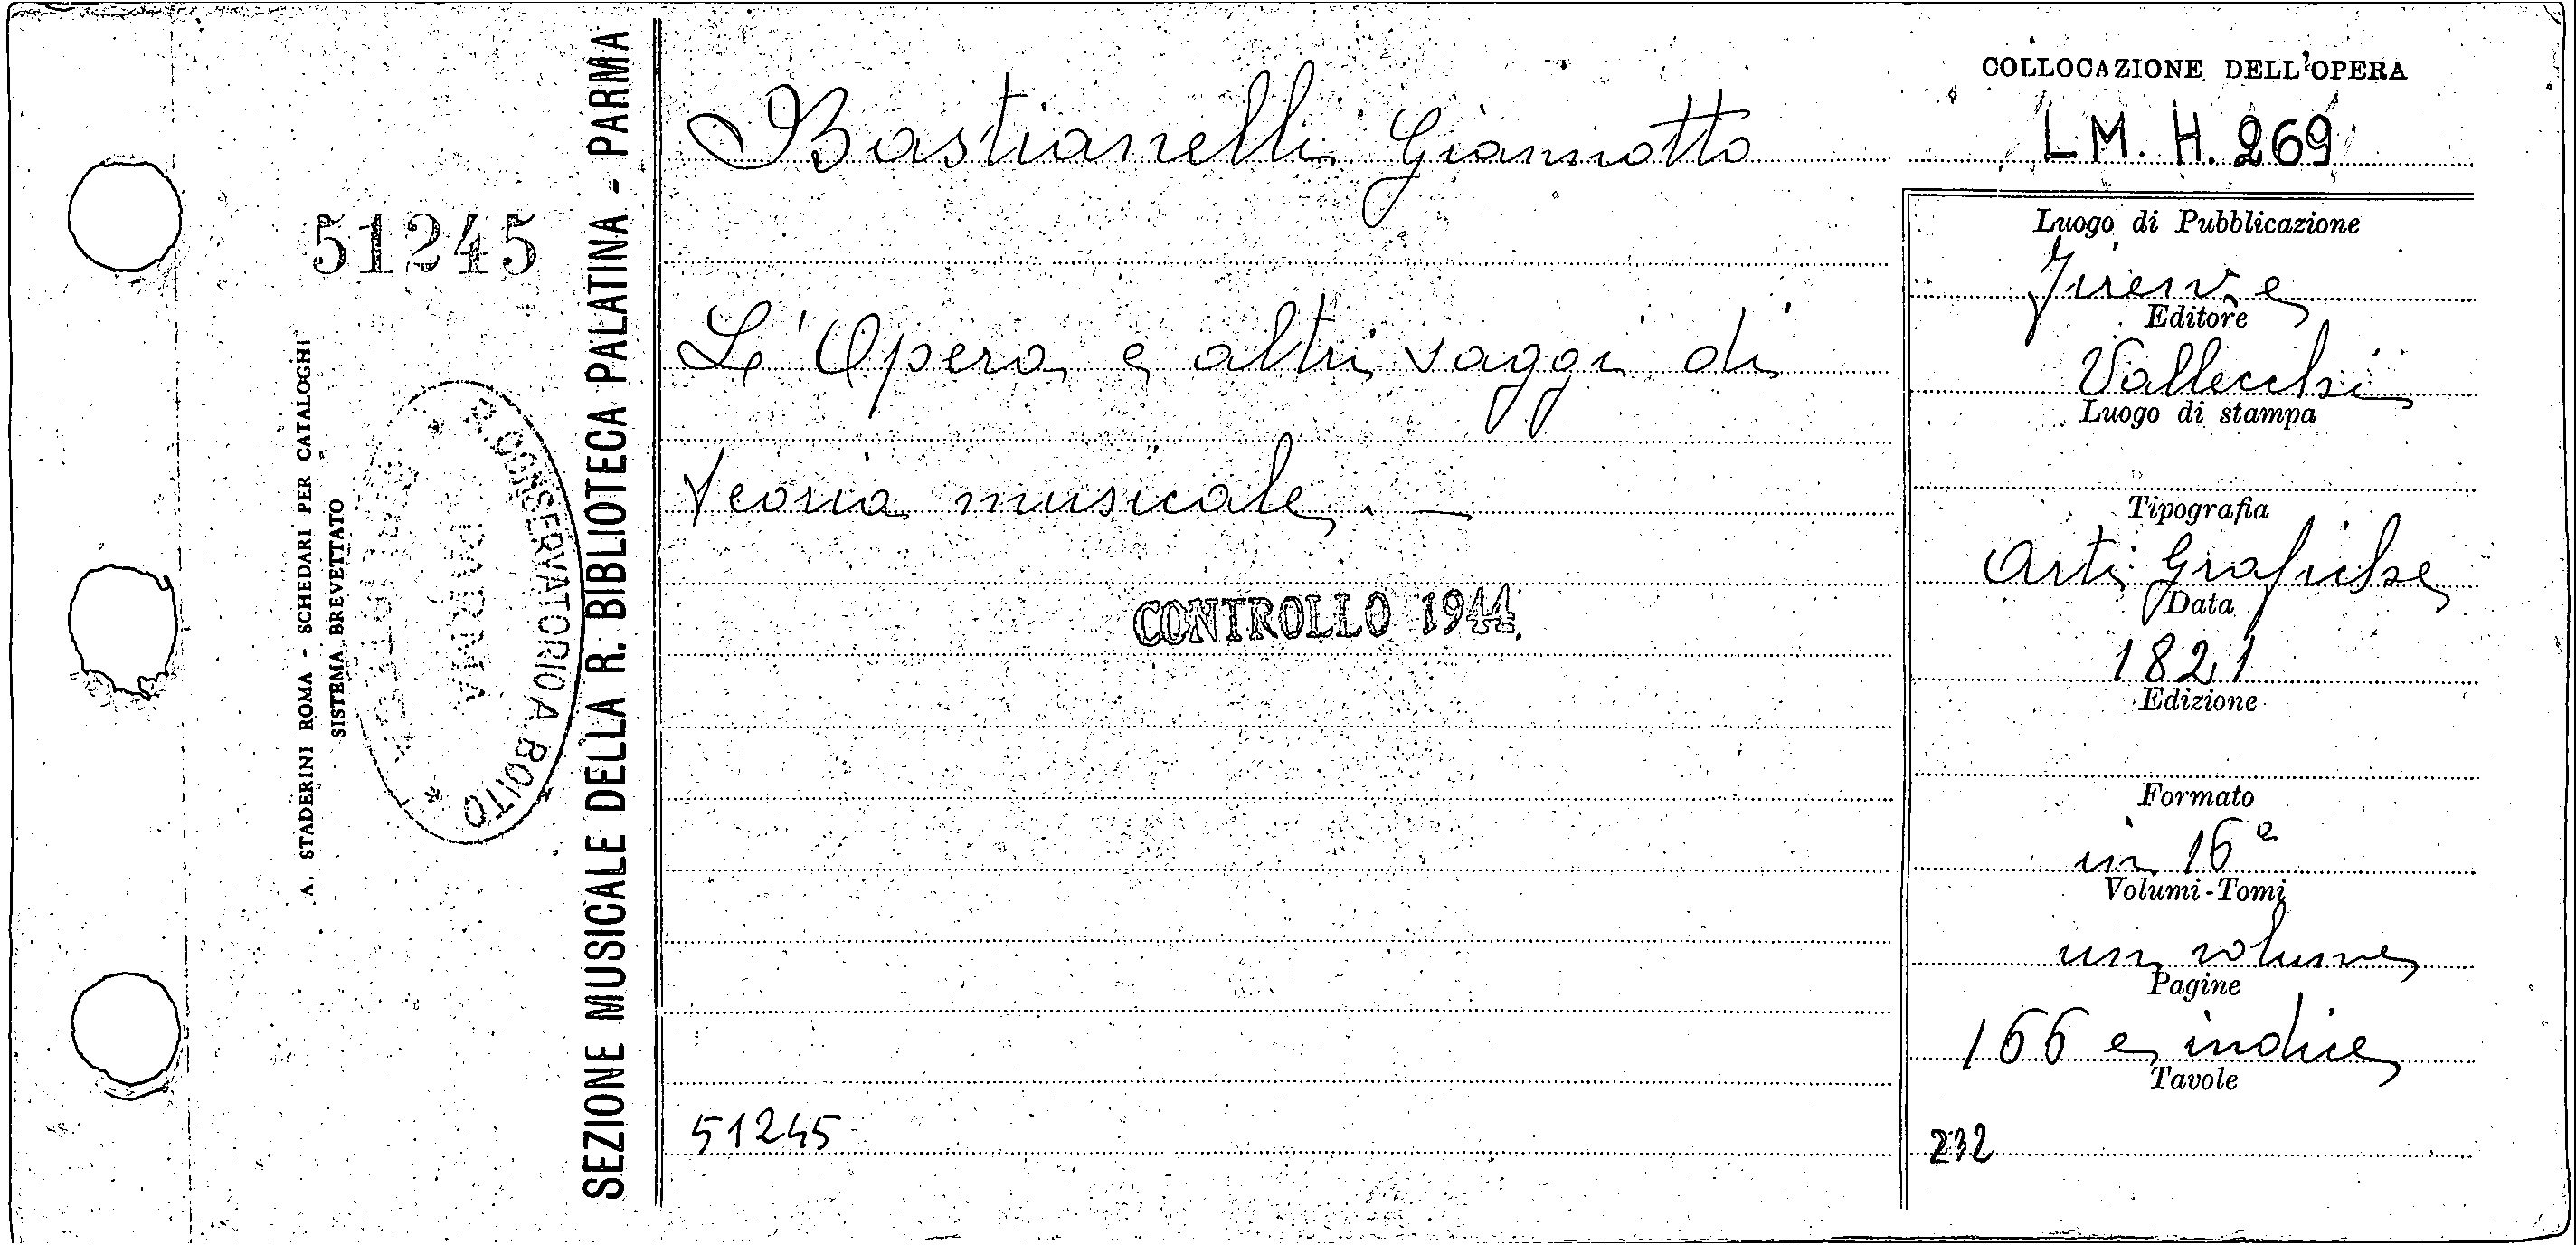 COLLOCAZIONE DELL'OPERA
LM. H. 269
Bastianelli Giannotto
L'Opera e altri saggi di
teoria musicale. —
CONTROLLO 1944
51245
Luogo di Pubblicazione
Firenze
Editore
Vallecchi
Luogo di stampa
Tipografia
Arti Grafiche
Data
1821
Edizione
Formato
in 16°
Volumi-Tomi
un volume
Pagine
166 e indice
Tavole
232
51245
A. STADERINI ROMA - SCHEDARI PER CATALOGHI
SISTEMA BREVETTATO
* R. CONSERVATORIO A. BOITO *
PARMA
SEZIONE MUSICALE DELLA R. BIBLIOTECA PALATINA - PARMA